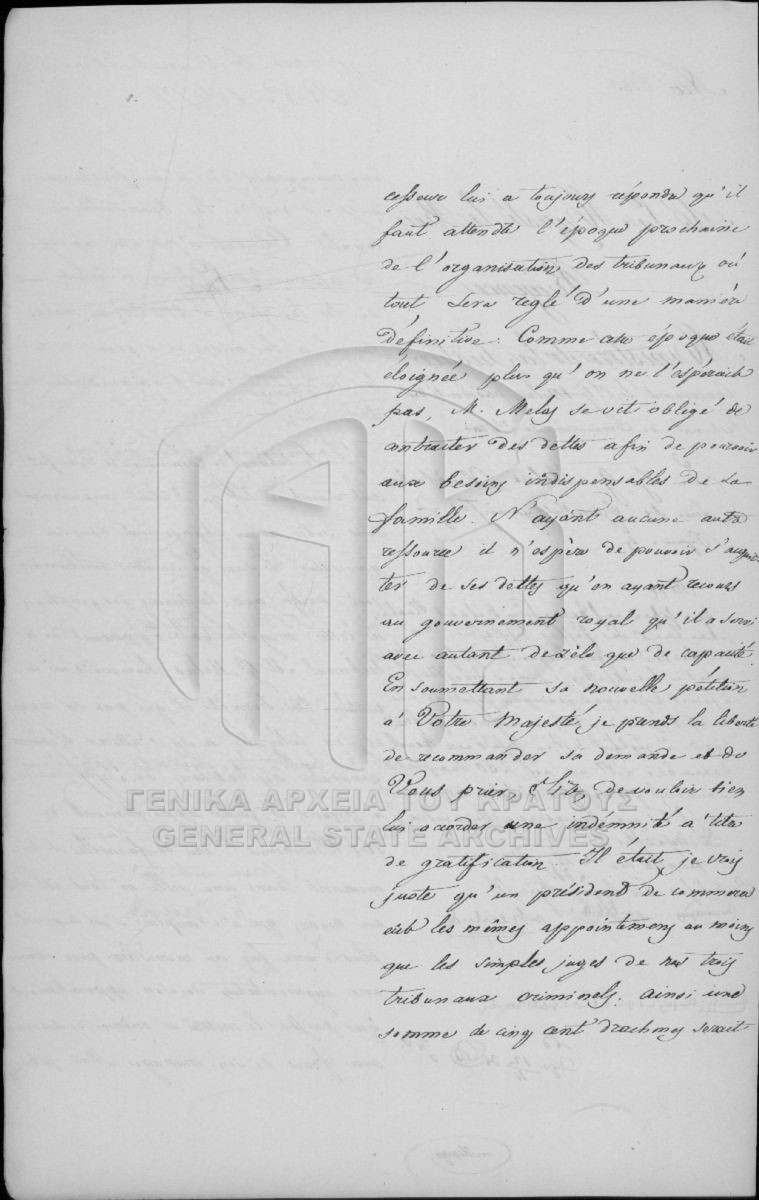 cesseur lui a toujours répondu qu'il
faut attendre l'époque prochaine
de l'organisation des tribunaux où
tout sera reglé d'une manière
définitive. Comme cette époque était
éloignée plus qu'on ne l'espérait
pas, M. Melas se vit obligé de
contracter des dettes afin de pourvoir
aux besoins indispensables de sa
famille. N'ayant aucune autre
ressource il n'espère de pouvoir s'acquit-
ter de ses dettes qu'en ayant recours
au gouvernement royal qu'il a servi
avec autant de zèle que de capacité.
En soumettant sa nouvelle pétition
à Votre Majesté, je prends la liberté
de recommander sa demande et de
Vous prier, Sire, de vouloir bien
lui accorder une indémnité à titre
de gratification. Il était, je crois
juste qu'un président de commerce
eût les mêmes appointemens au moins
que les simples juges de nos trois
tribunaux criminels. ainsi une
somme de cinq cent drachmes serait-
ΓΕΝΙΚΑ ΑΡΧΕΙΑ ΤΟΥ ΚΡΑΤΟΥΣ
GENERAL STATE ARCHIVES